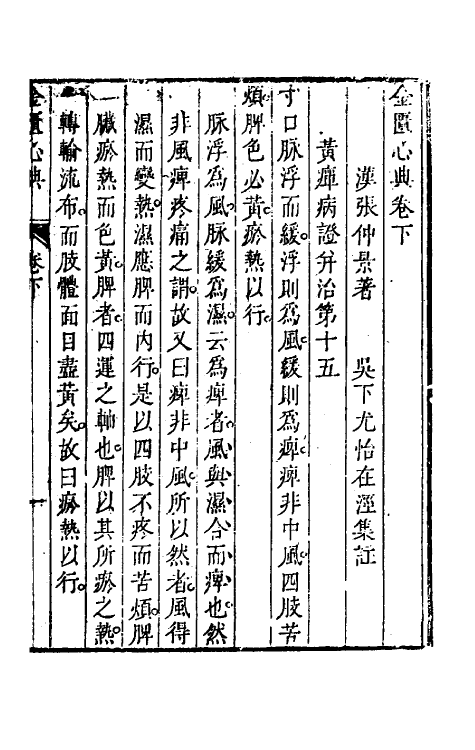 金匱心典卷下
漢張仲景著　吳下尤怡在涇集註
黃癉病證幷治第十五
寸口脉浮而緩浮則為風緩則為痺痺非中風四肢苦
煩脾色必黃瘀熱以行
脉浮為風脉緩為濕云為痺者風與濕合而痺也然
非風痺疼痛之謂故又曰痺非中風所以然者風得
濕而變熱濕應脾而內行是以四肢不疼而苦煩脾
臟瘀熱而色黃脾者四運之軸也脾以其所瘀之熱
轉輸流布而肢體面目盡黃矣故曰瘀熱以行
金匱心典　卷下　一